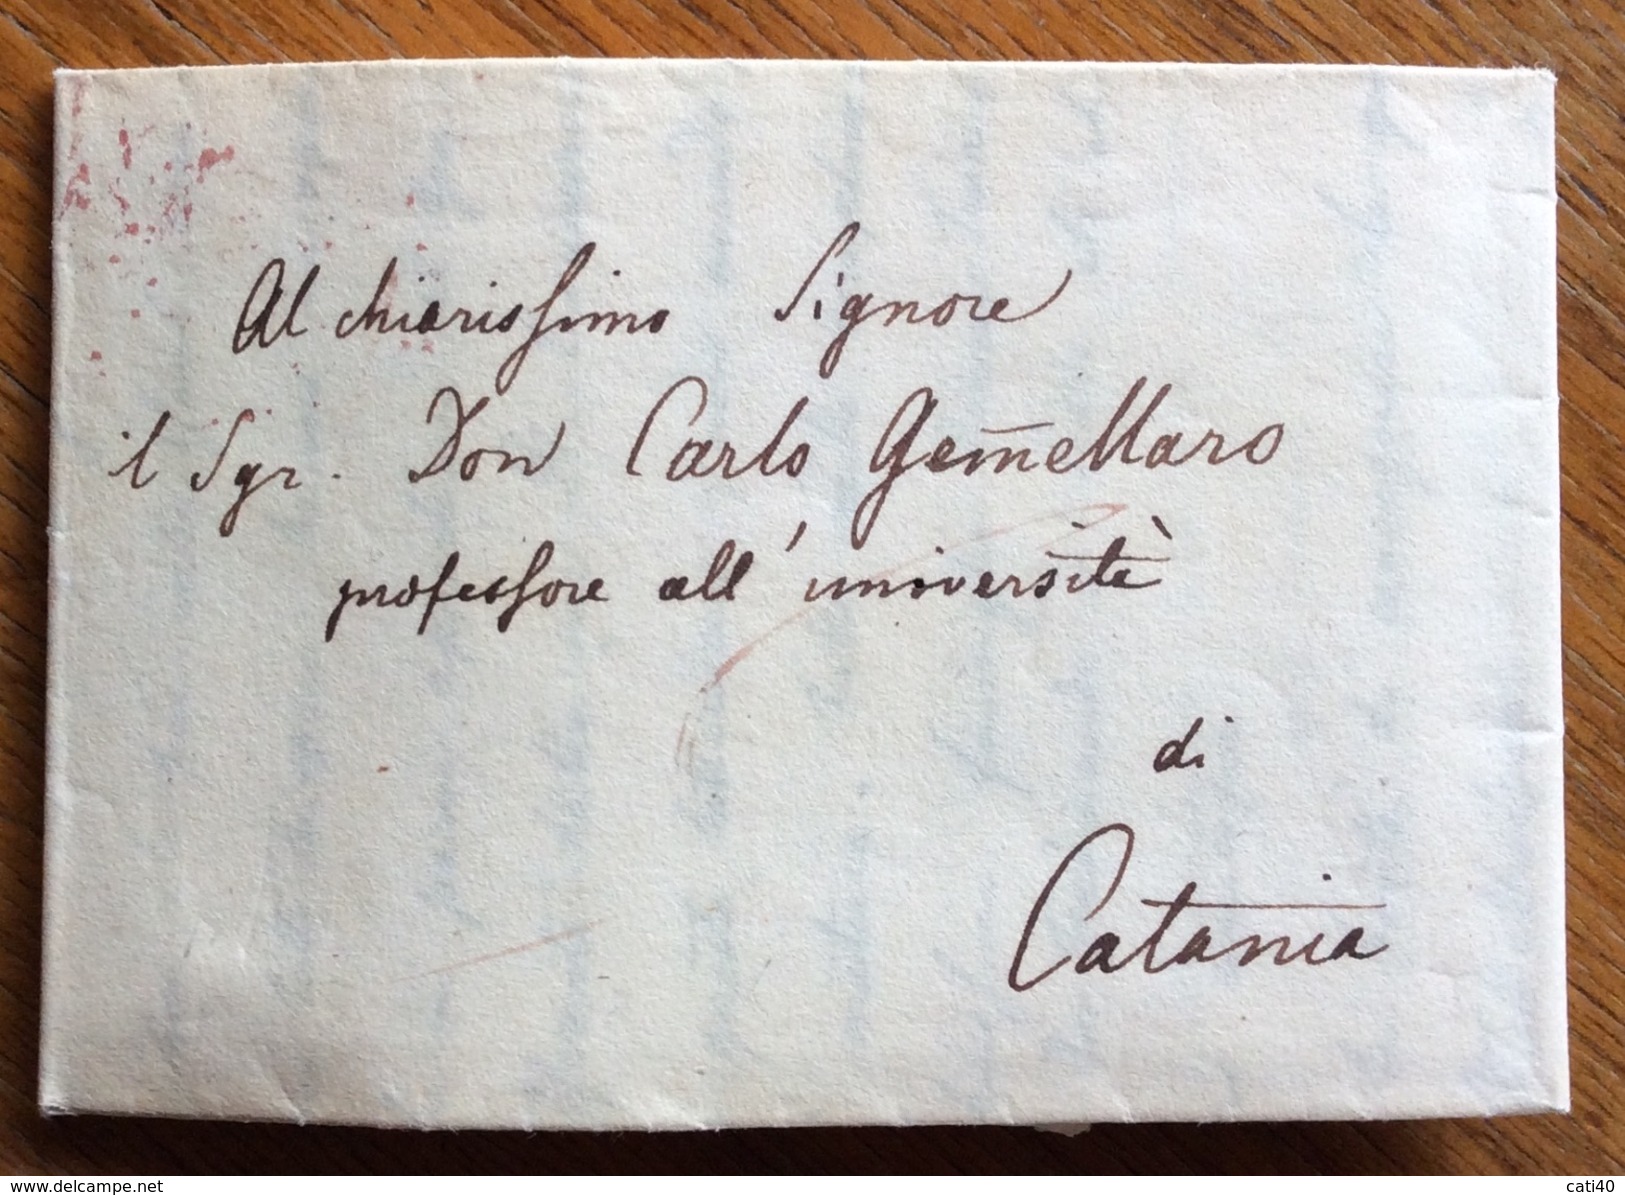 Al chiarissimo Signore
il Sgr. Don Carlo Gem̄ellaro
professore all' università
di
Catania
www.delcampe.net
cati40